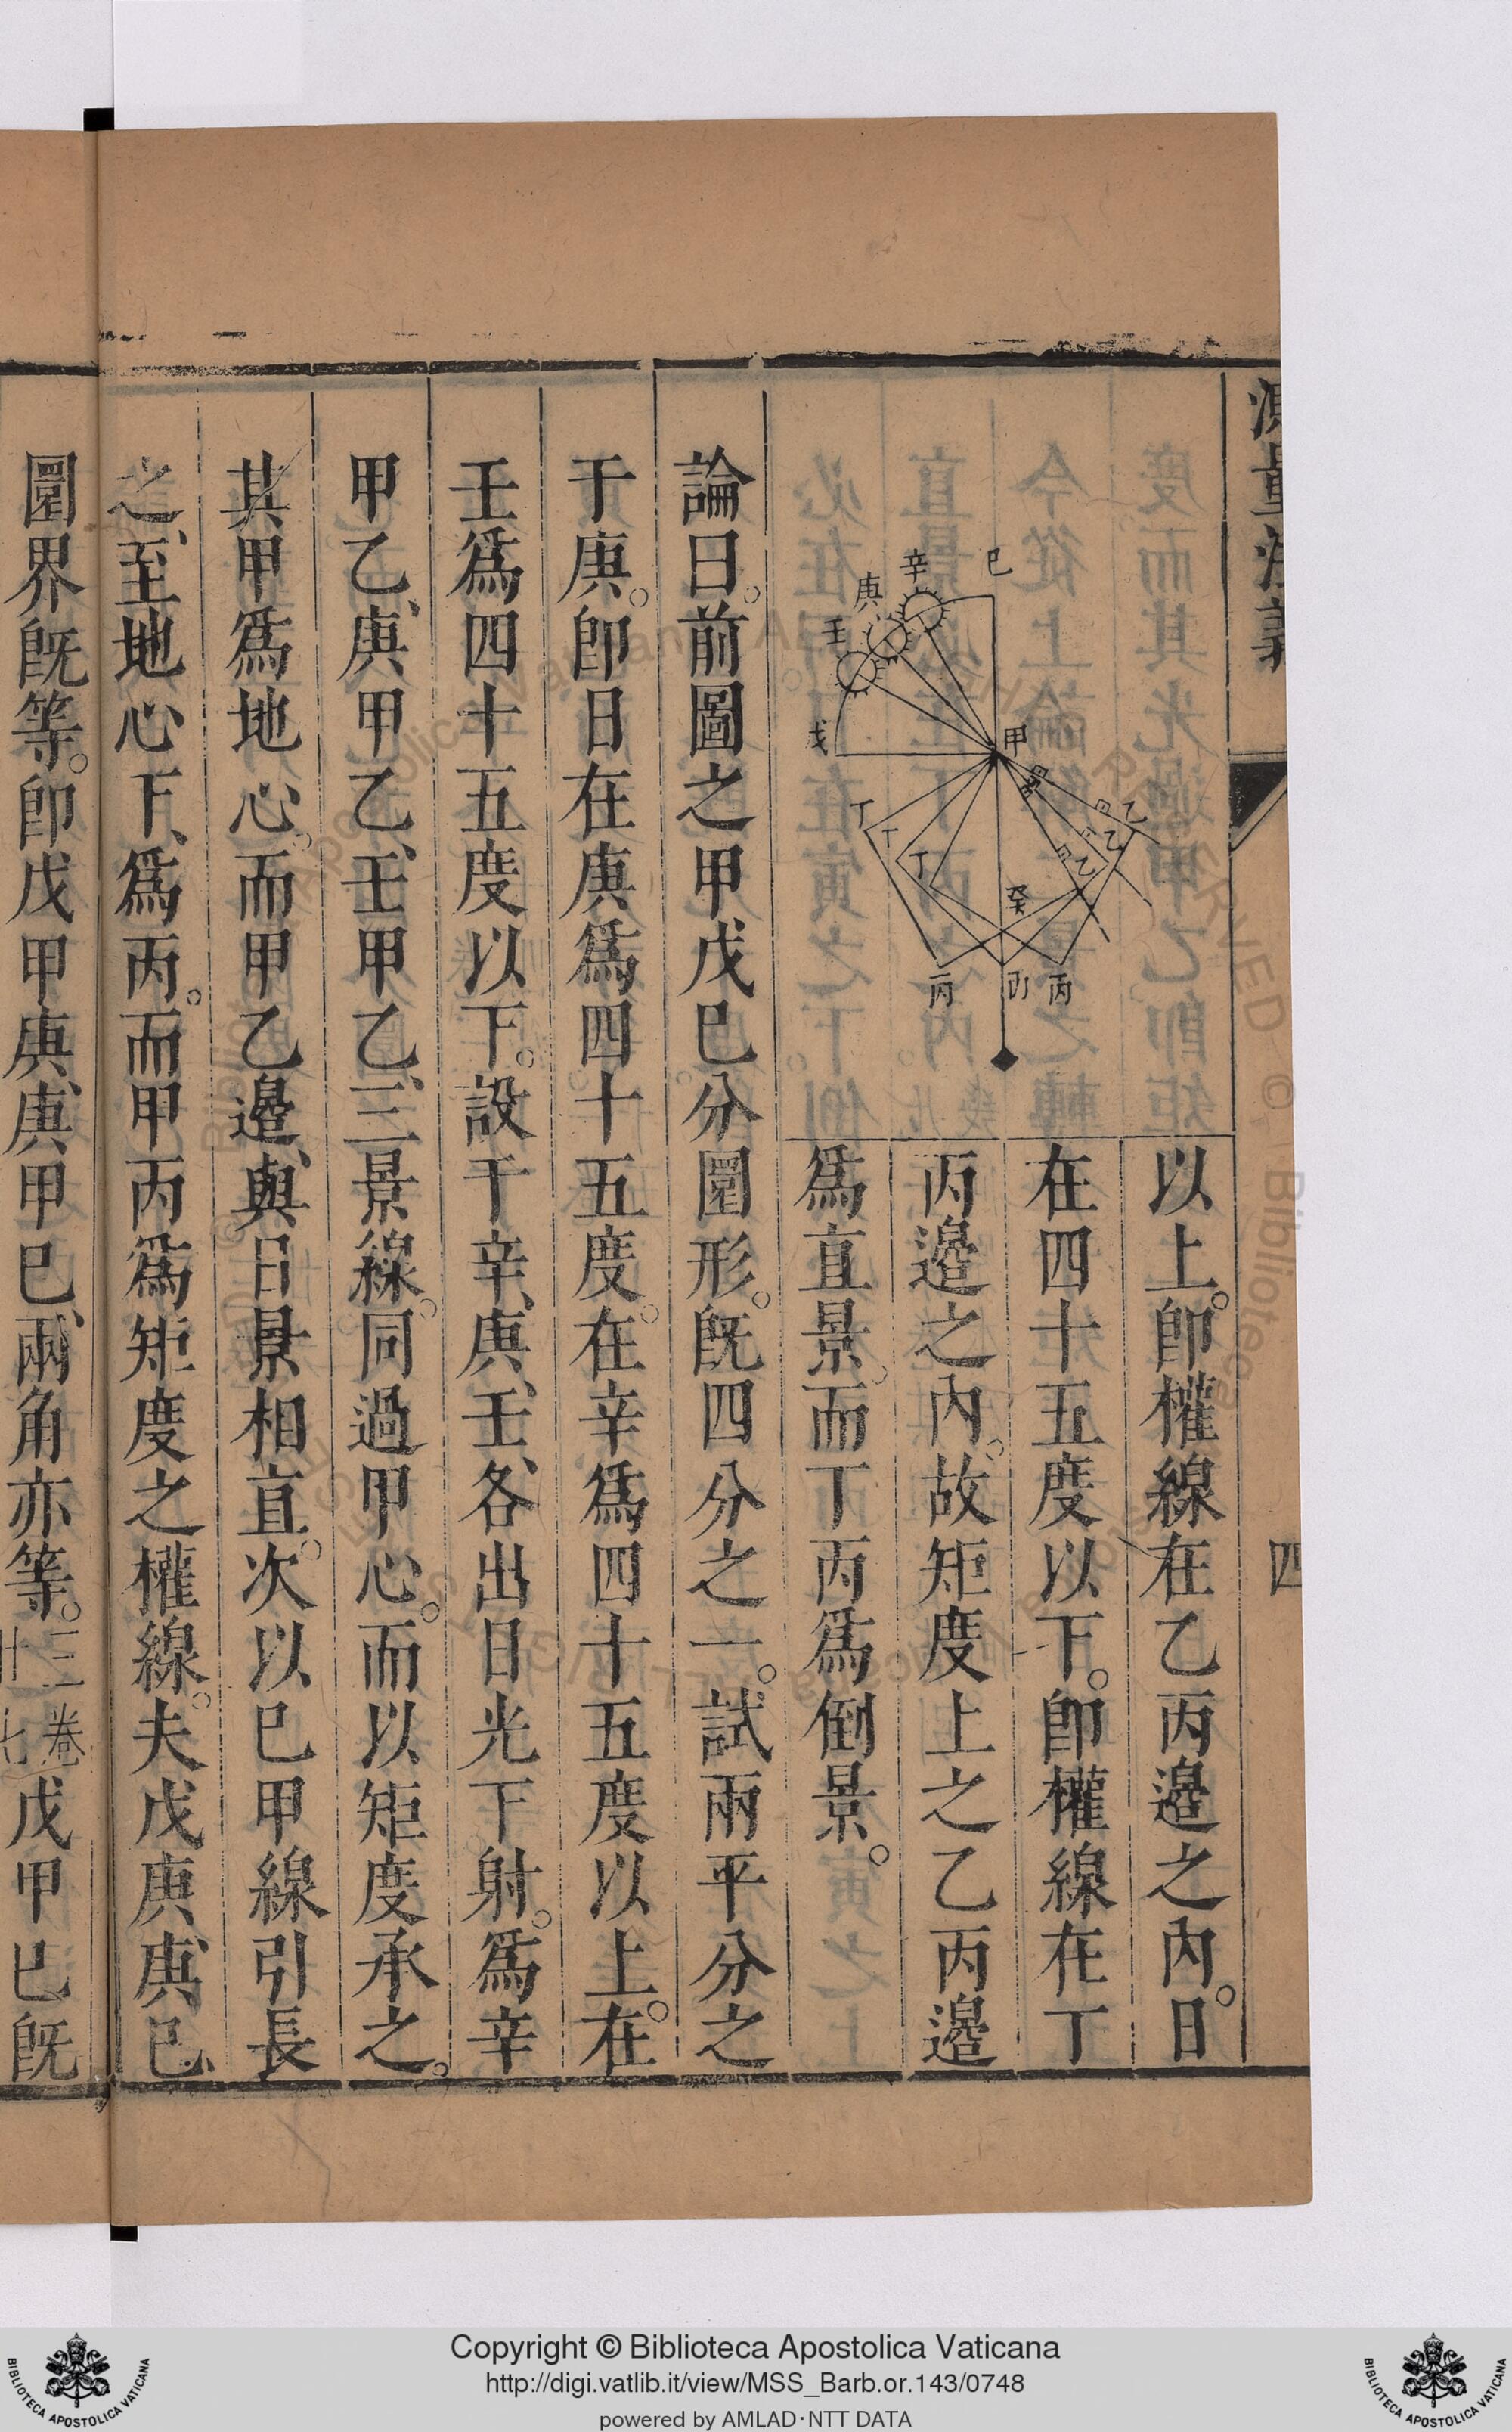 測量法義
四
巳
辛
庚
壬
戊
甲
乙
乙
乙
丁
丁
丁
癸
丙
丙
丙
以上。卽權線在乙丙邉之內。日
在四十五度以下。卽權線在丁
丙邉之內。故矩度上之乙丙邉
爲直景。而丁丙爲倒景。
論曰。前圖之甲戊巳分圜形。旣四分之一。試兩平分之
于庚。卽日在庚爲四十五度。在辛爲四十五度以上。在
壬爲四十五度以下。設于辛、庚、壬、各出日光下射。爲辛
甲乙、庚甲乙、壬甲乙、三景線。同過甲心。而以矩度承之。
其甲爲地心。而甲乙邉、與日景相直。次以巳甲線引長
之、至地心下、爲丙。而甲丙爲矩度之權線。夫戊庚、庚巳、
圜界旣等。卽戊甲庚、庚甲巳、兩角亦等。三卷廿七戊甲巳旣
Copyright © Biblioteca Apostolica Vaticana
http://digi.vatlib.it/view/MSS_Barb.or.143/0748
powered by AMLAD·NTT DATA
BIBLIOTECA APOSTOLICA VATICANA
BIBLIOTECA APOSTOLICA VATICANA